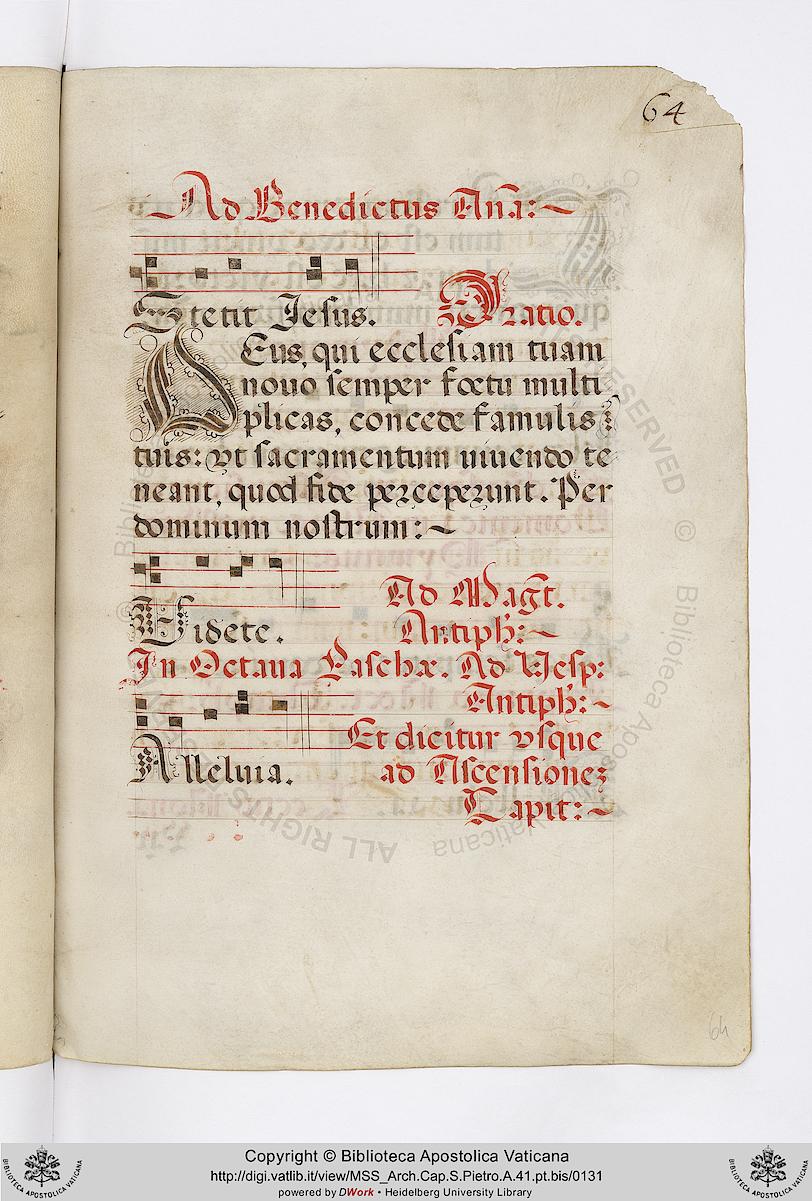 64
Ad Benedictus Añã:~
Stetit Jesus. Oratio.
DEus, qui ecclesiam tuam
nouo semper fœtu multi
plicas, concede famulis
tuis: vt sacramentum uiuendo te
neant, quod fide perceperunt. Per
dominum nostrum:~
Ad Magt̃.
Videte. Antiph:~
In Octaua Paschæ. Ad Vesp:
Antiph:~
Et dicitur vsque
Alleluia. ad Ascensionez
Capit:~
64
Copyright © Biblioteca Apostolica Vaticana
http://digi.vatlib.it/view/MSS_Arch.Cap.S.Pietro.A.41.pt.bis/0131
powered by DWork • Heidelberg University Library
BIBLIOTECA APOSTOLICA VATICANA
BIBLIOTECA APOSTOLICA VATICANA